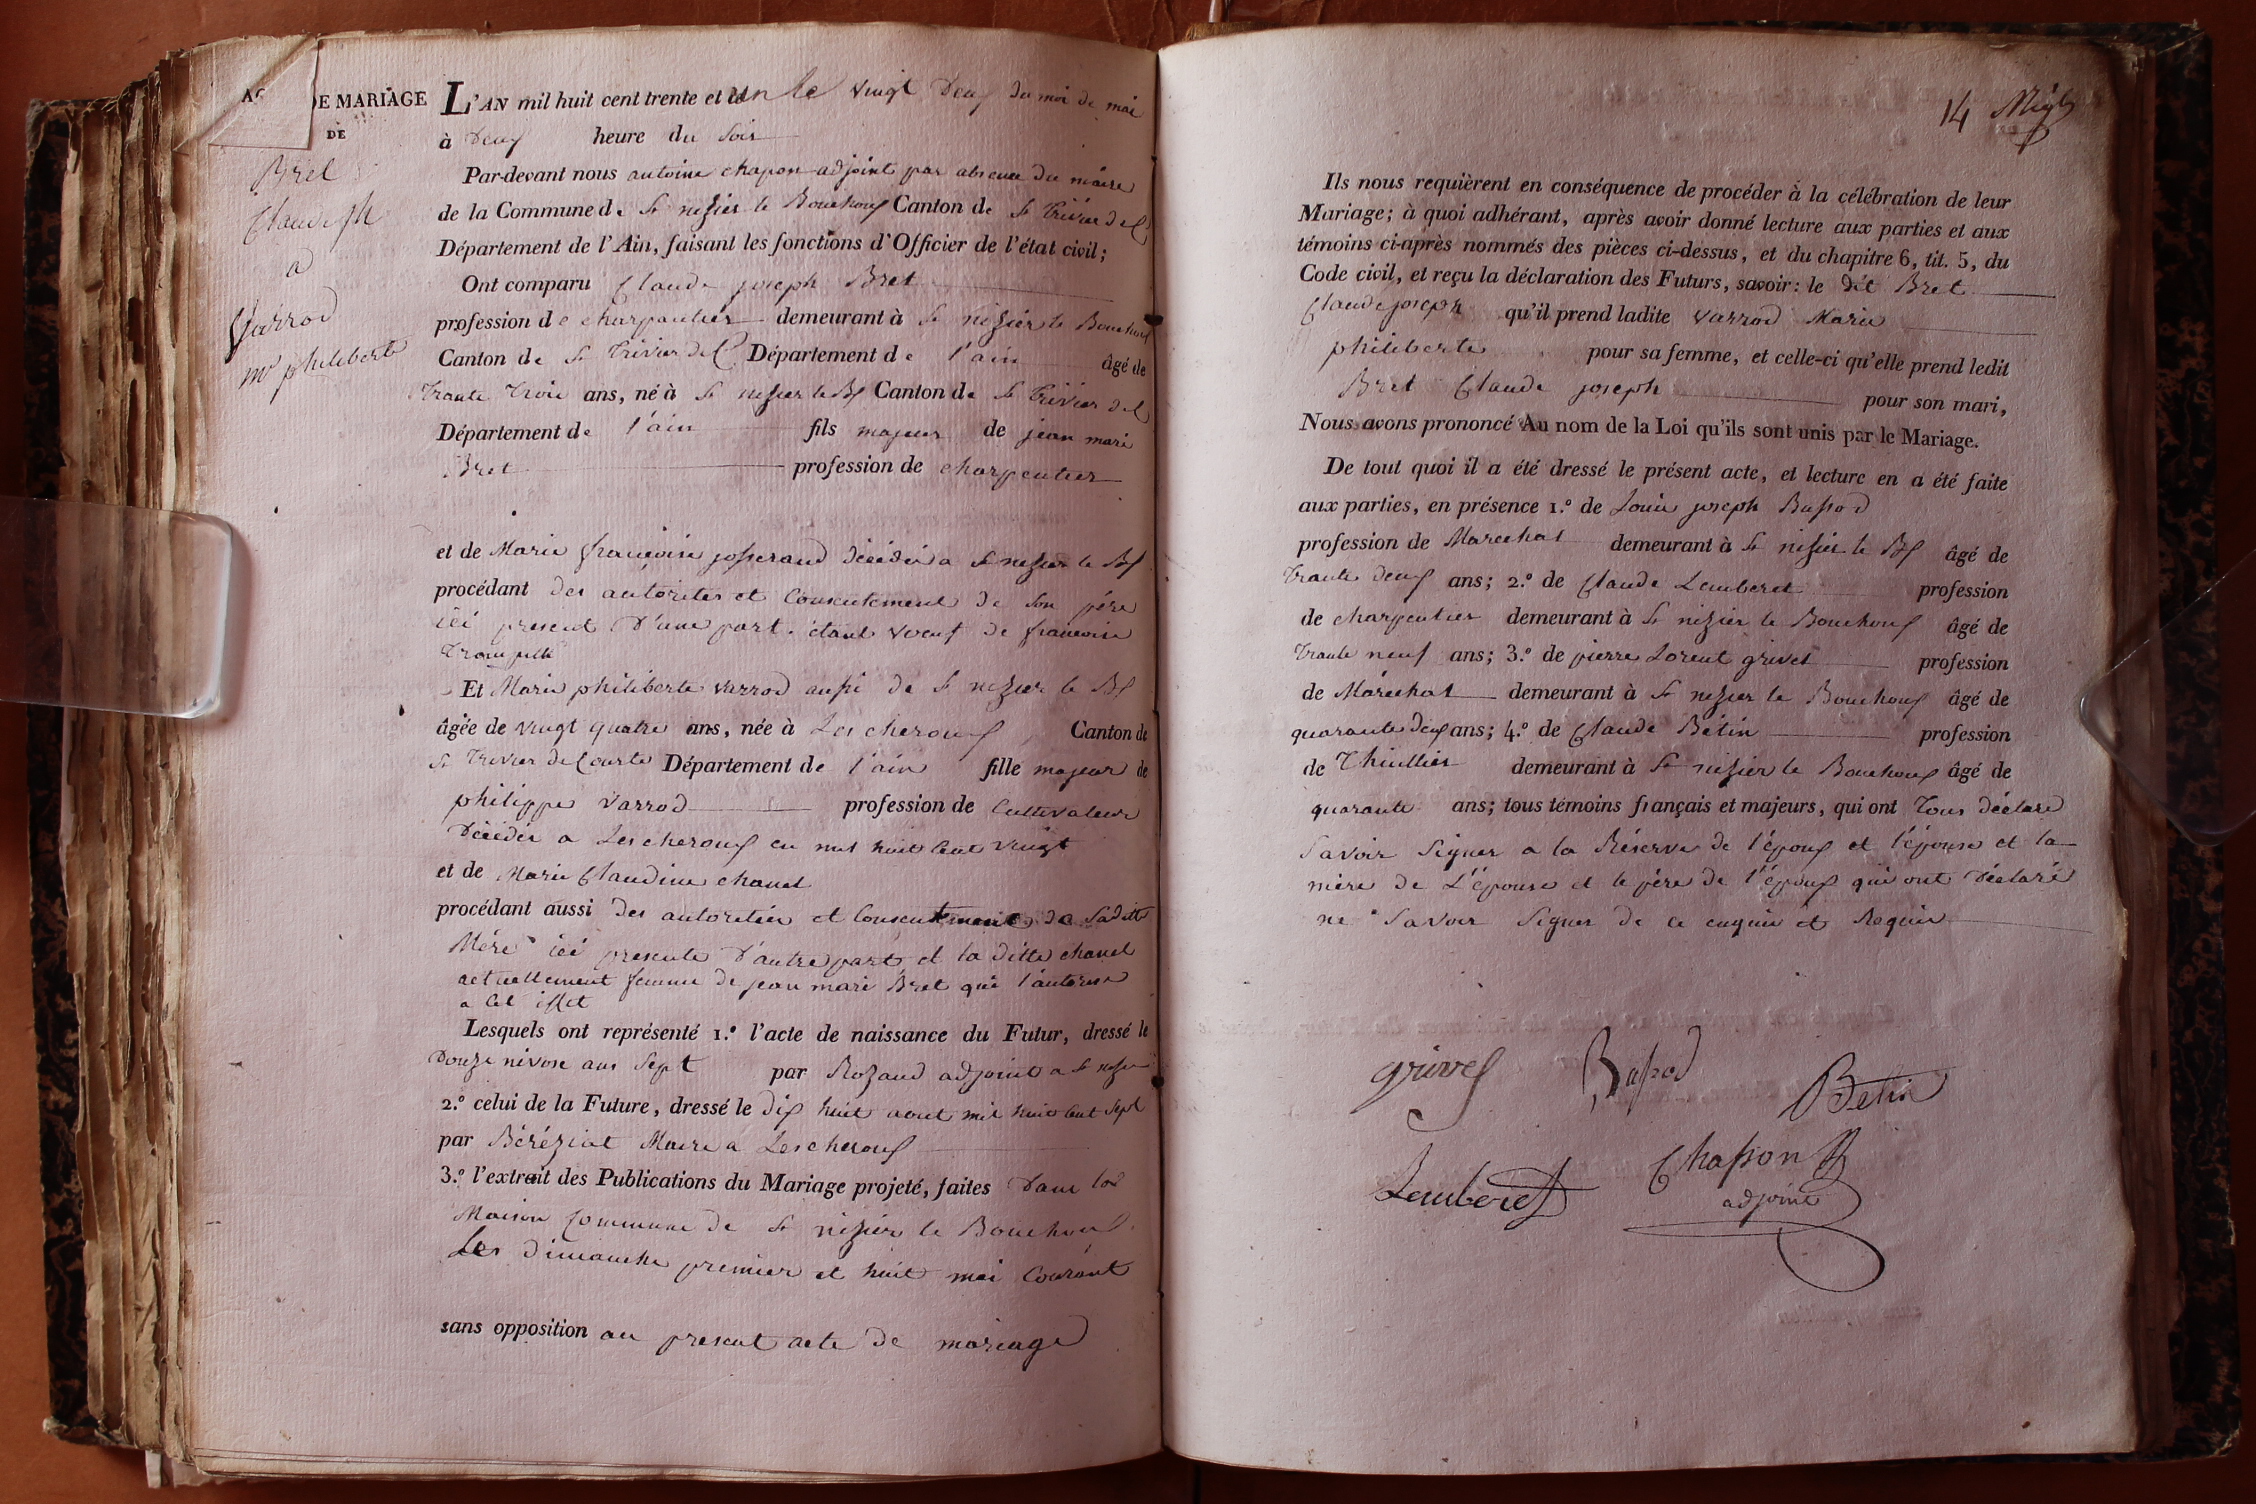 DE MARIAGE
DE
Bret
Claude jh
a
Varrod
mie philiberte
L'AN mil huit cent trente et un le vingt Deux du moi de mai
à Deux heure du Soir
Par-devant nous antoine chapon adjoint par absence du maire
de la Commune de St nizier le Bouchoux Canton de St Trivier de C
Département de l'Ain, faisant les fonctions d'Officier de l'état civil;
Ont comparu Claude joseph Bret
profession de charpentier demeurant à St nizier le Bouchoux
Canton de St Trivier de C Département de l'ain âgé de
Trante Trois ans, né à St nizier le Bx Canton de St Trivier de C
Département de l'ain fils majeur de jean mari
Bret profession de charpentier
et de Marie françoise josserand décédée a St nizier le Bx
procédant des autorites et Consentement de Son père
ici present D'une part. étant voeuf de francoise
Et Marie philiberte varrod aussi de St nizier le Bx
âgée de vingt quatre ans, née à Lescheroux Canton de
St Trivier de Courte Département de l'ain fille majeur de
philippe varrod profession de Cultivateur
Décédée a Lescheroux en mil huit Cent vingt
et de Marie Claudine chanel
procédant aussi des autoritées et Consentement de Saditte
Mére ici presente D'autre part et la ditte chanel
actuellement femme de jean mari Bret qui l'autorise
a Cet effet
Lesquels ont représenté 1.º l'acte de naissance du Futur, dressé le
Douze nivose ans Sept par Rozand adjoint a St nizier
2.º celui de la Future, dressé le Dix huit aout mil huit Cent Sept
par Béréziat Maire a Lescheroux
3.º l'extrait des Publications du Mariage projeté, faites Dans la
Maison Commune de St nizier le Bouchoux
Les dimanche premier et huit mai Courant
sans opposition au present acte de mariage
14
Ils nous requièrent en conséquence de procéder à la célébration de leur
Mariage; à quoi adhérant, après avoir donné lecture aux parties et aux
témoins ci-après nommés des pièces ci-dessus, et du chapitre 6, tit. 5, du
Code civil, et reçu la déclaration des Futurs, savoir: le dit Bret
Claude joseph qu'il prend ladite varrod Marie
philiberte pour sa femme, et celle-ci qu'elle prend ledit
Bret Claude joseph pour son mari,
Nous avons prononcé Au nom de la Loi qu'ils sont unis par le Mariage.
De tout quoi il a été dressé le présent acte, et lecture en a été faite
aux parties, en présence 1.º de Louis joseph Bassod
profession de Marechal demeurant à St nizier le Bx âgé de
Trante deux ans; 2.º de Claude Lemberet profession
de charpentier demeurant à St nizier le Bouchoux âgé de
Trante neuf ans; 3.º de pierre Lorent grivet profession
de Maréchal demeurant à St nizier le Bouchoux âgé de
quarante deux ans; 4.º de Claude Bétin profession
de Thuillier demeurant à St nizier le Bouchoux âgé de
quarante ans; tous témoins français et majeurs, qui ont Tous déclaré
Savoir Signer a la Réserve de l'époux et l'épouse et la
mère de L'épouse et le père de l'époux qui ont Déclaré
ne Savoir Signer de ce enquis et Requis
grivet Bassod Betin
Lemberet Chapon
adjoint